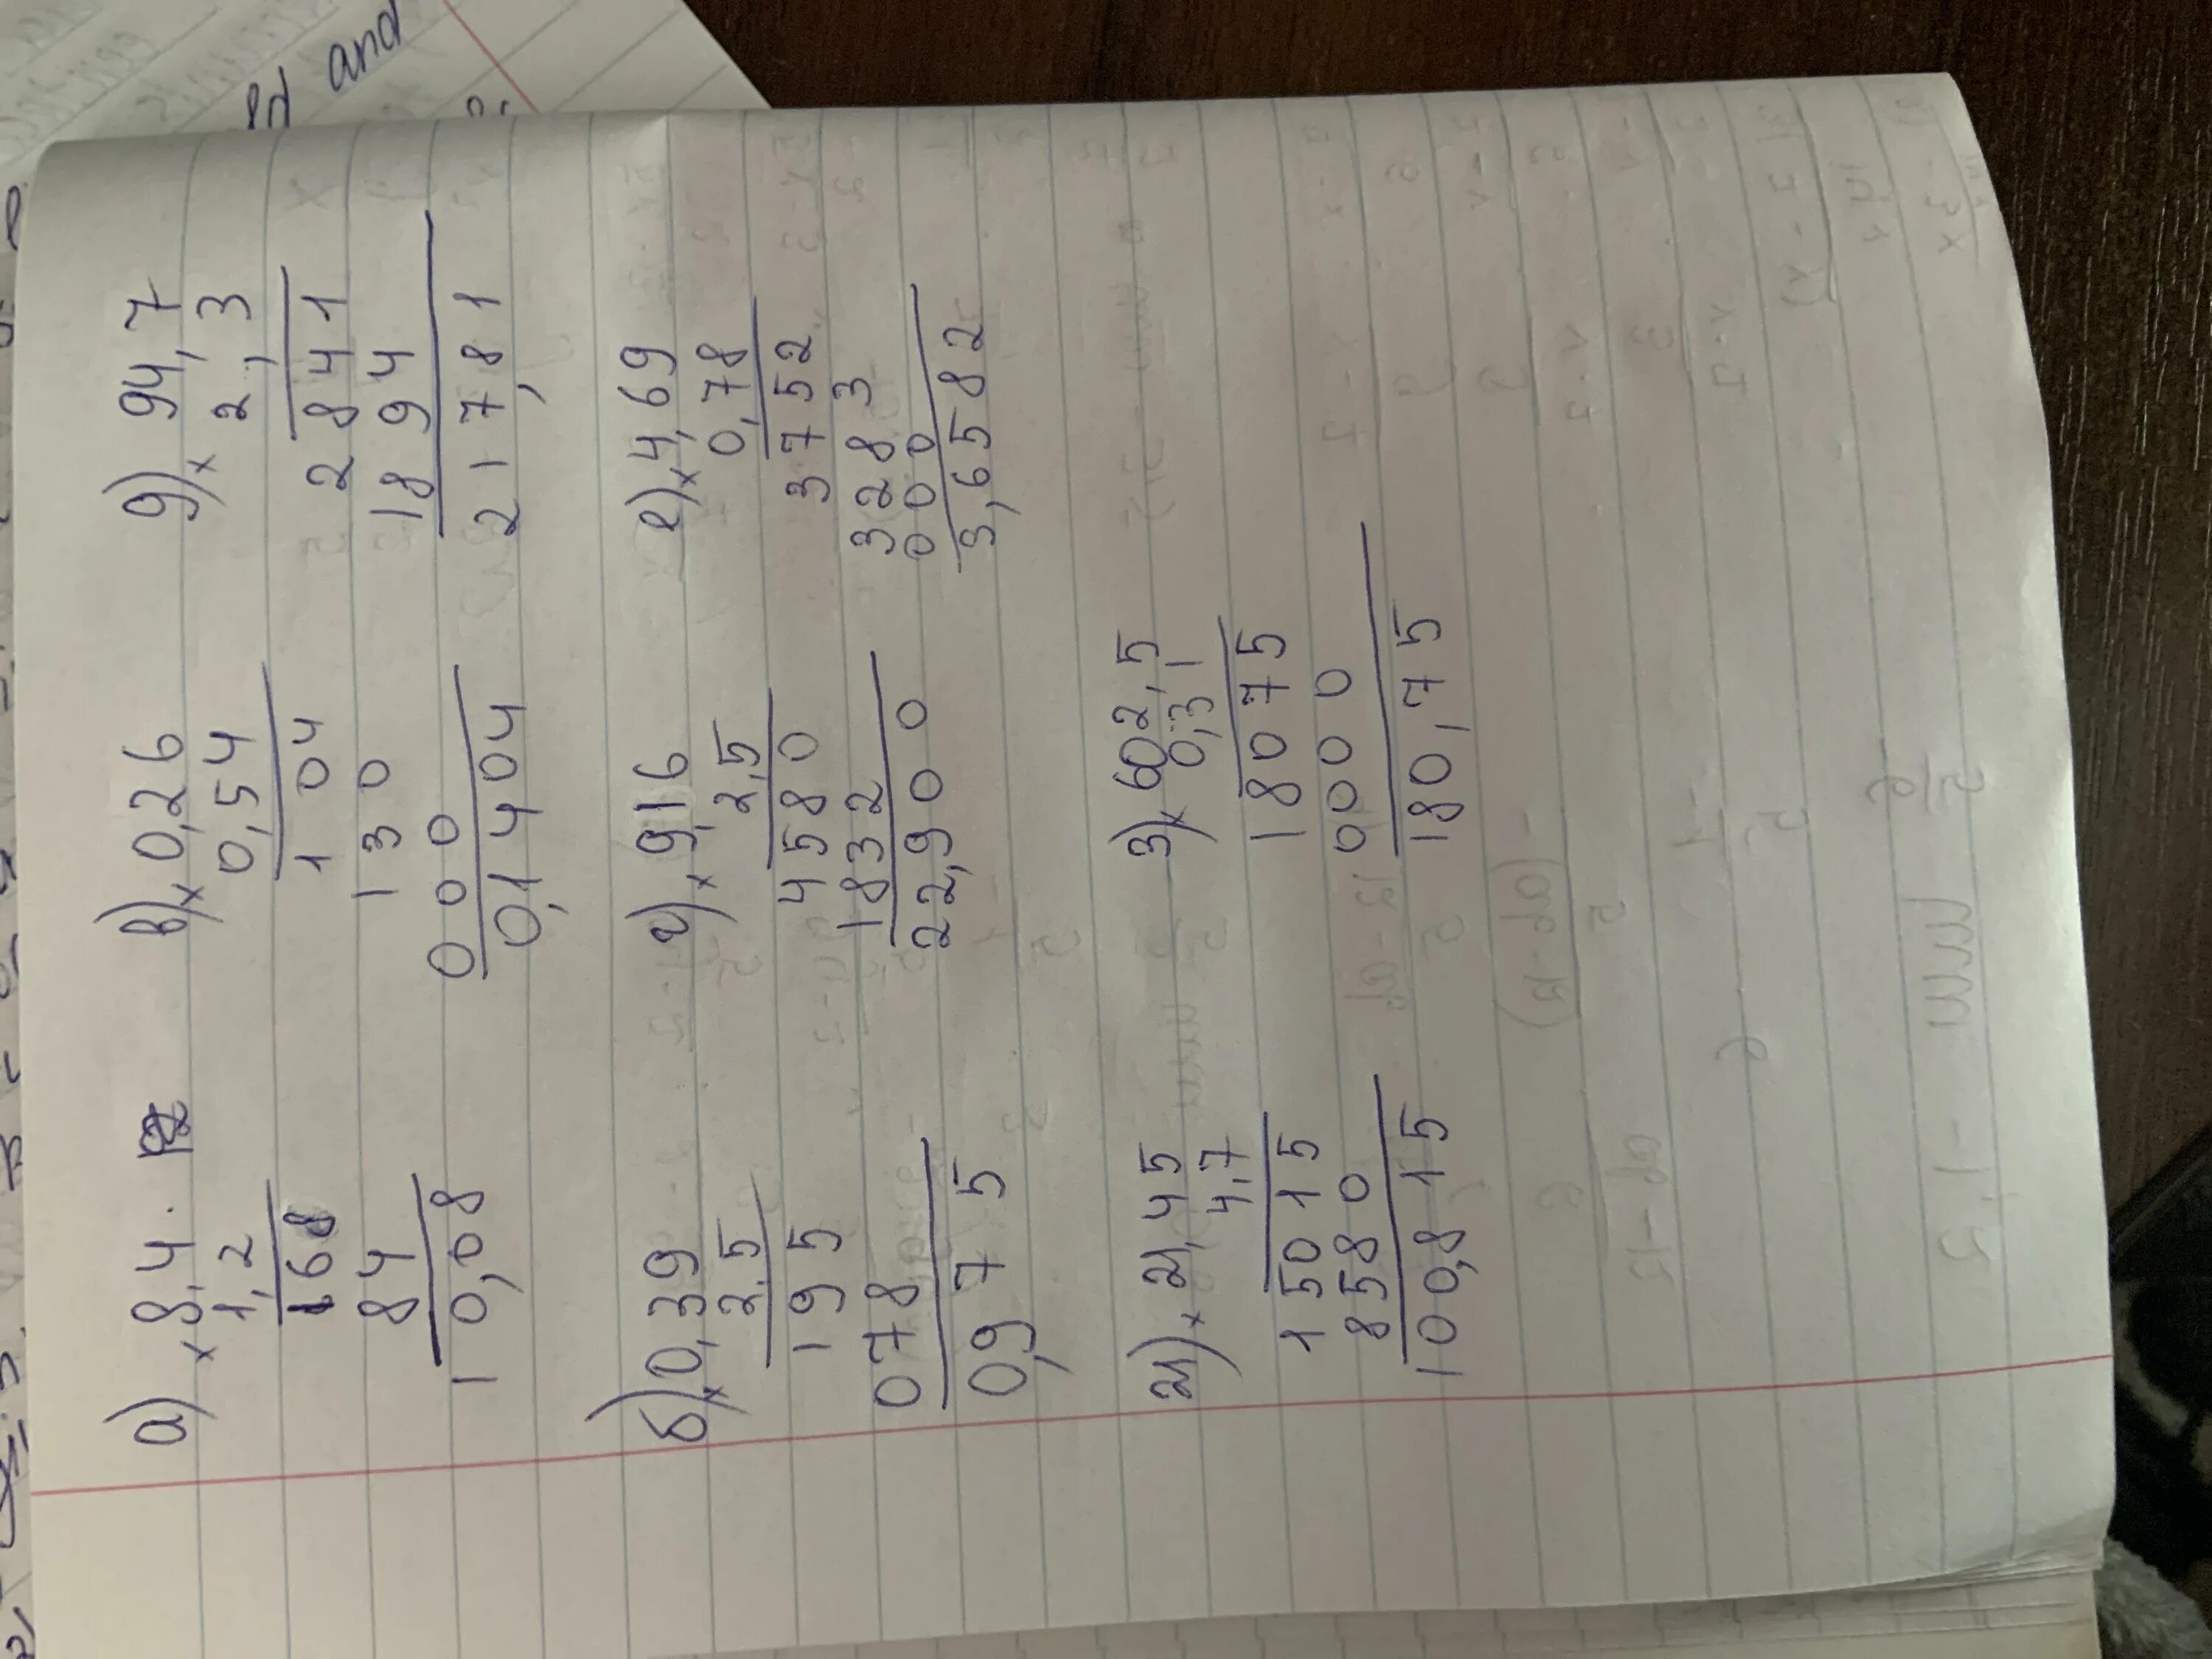 а) × 8,4 в) × 0,26 д) × 94,7
1,2 0,54 2,3
168 104 2841
84 130 1894
10,08 000 217,81
0,1404
б) × 0,39 г) × 9,16 е) × 4,69
2,5 2,5 0,78
195 4580 3752
078 1832 3283
0,975 22,900 000
3,6582
ж) × 21,45 з) × 602,5
4,7 0,31
15015 18075
8580 0000
100,815 180,75
and